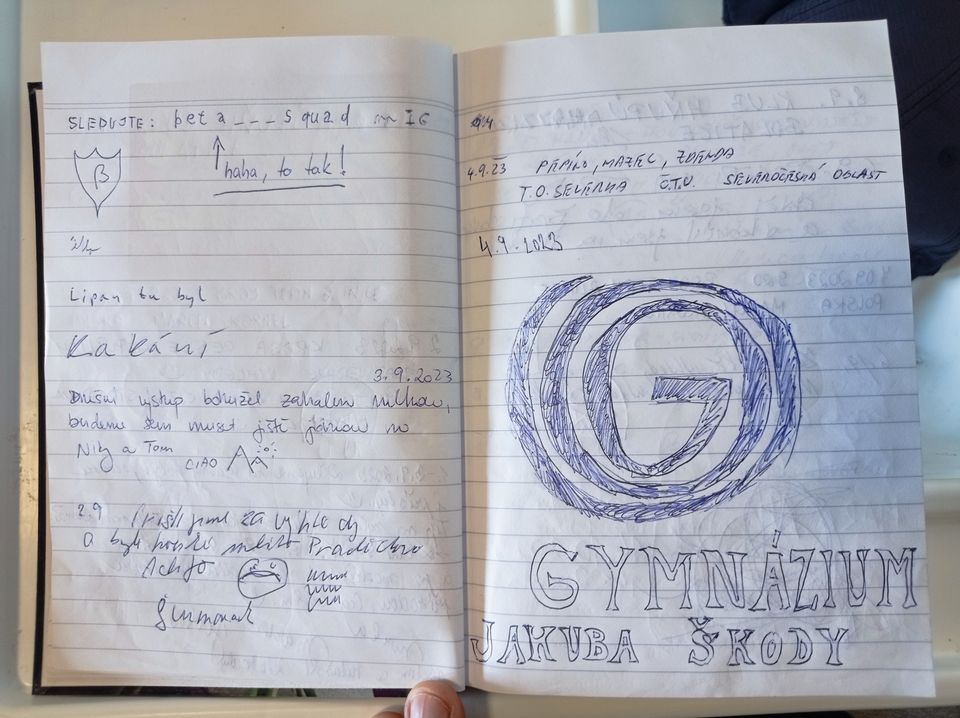 SLEDUJTE: beta___squad na IG
haha, to tak!
β
Lipan tu byl
Kakání
3.9.2023
Dnešní výstup bohužel zahalen mlhou,
budeme sem muset ještě jednou
Niky a Tom
CIAO
2.9 Přišli jsme za výhledy
a byli
4.9.23 PEPÍNO, MAZEL, ZDENDA
T.O. SEVERKA Č.T.U. SEVEROČESKÁ OBLAST
4.9.2023
G
GYMNÁZIUM
JAKUBA ŠKODY